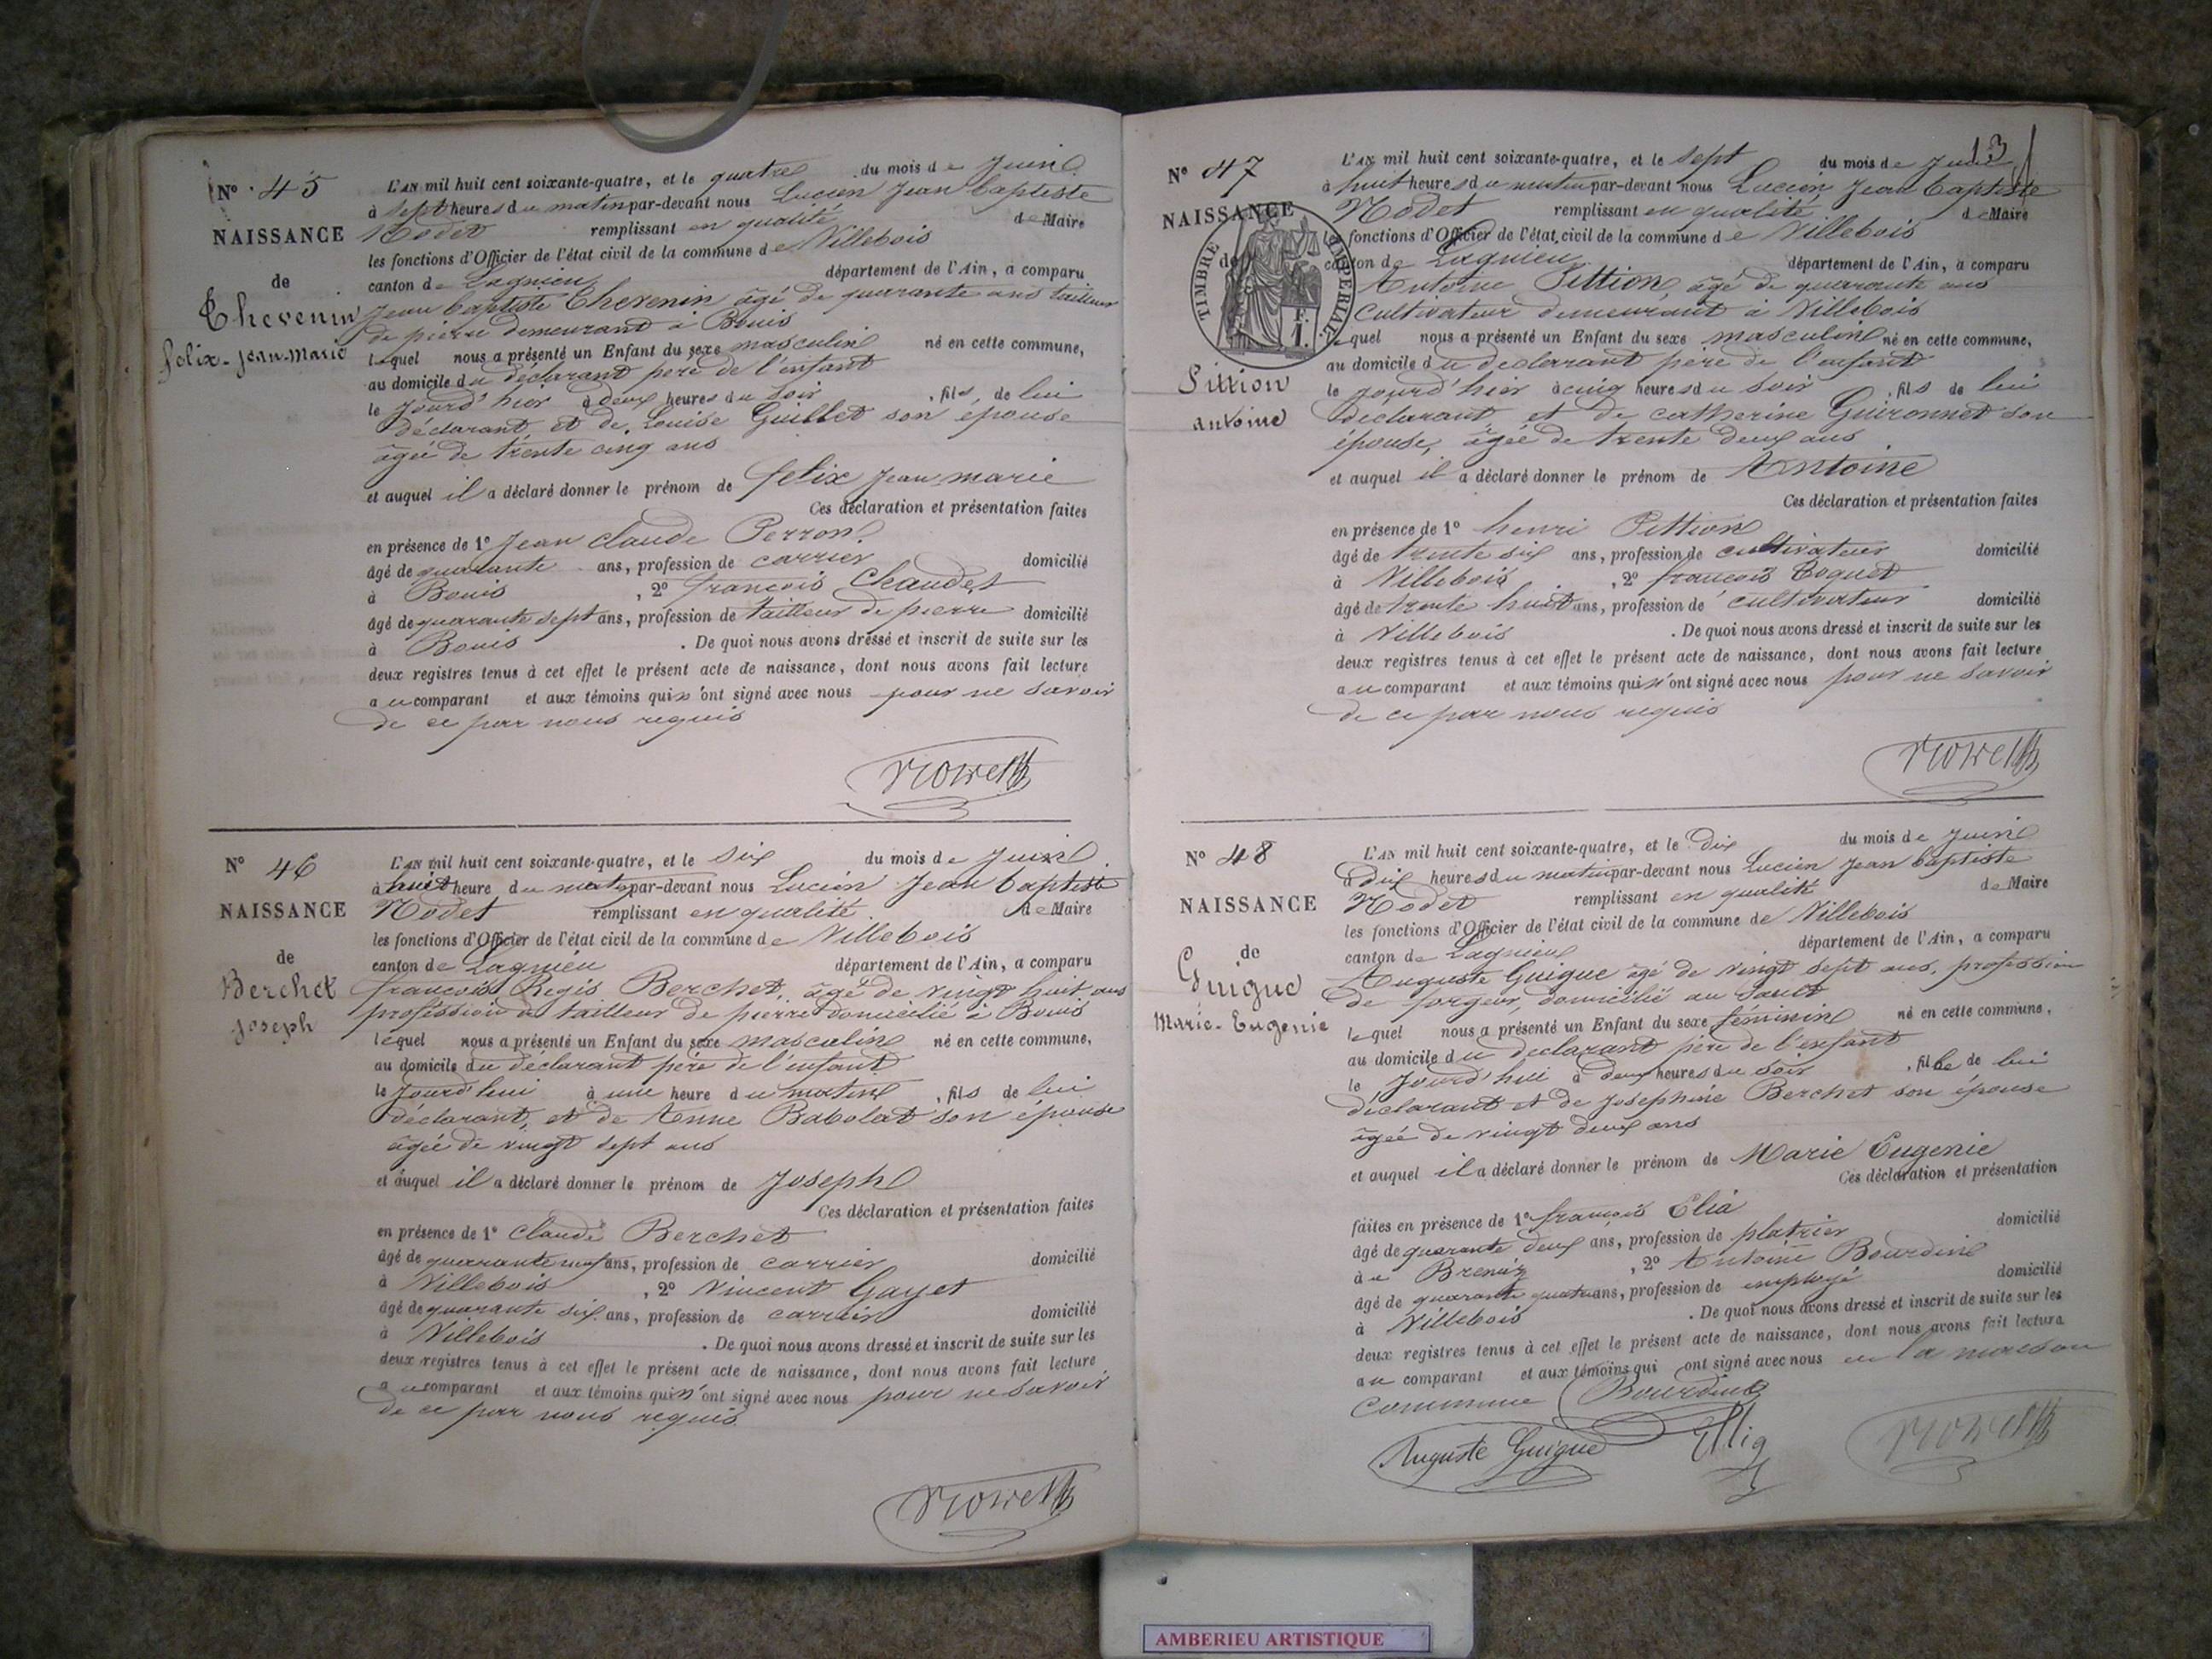 N° 45
NAISSANCE
de
Thevenin
felix-jean-marie
L'AN mil huit cent soixante-quatre, et le quatre du mois de Juin
à sept heures du matin par-devant nous Lucien Jean baptiste
Nodet remplissant en qualité de Maire
les fonctions d'Officier de l'état civil de la commune de Villebois
canton de Lagnieu département de l'Ain, a comparu
Jean baptiste Thevenin âgé de quarante ans tailleur
de pierre demeurant à Bouis
lequel nous a présenté un Enfant du sexe masculin né en cette commune,
au domicile du déclarant père de l'enfant
le jourd'hier à deux heures du soir, fils, de lui
déclarant et de Louise Guillet son épouse
âgée de trente cinq ans
et auquel il a déclaré donner le prénom de felix jean marie
Ces déclaration et présentation faites
en présence de 1° Jean claude Perron
âgé de quarante ans, profession de carrier domicilié
à Bouis, 2° françois Chaudet
âgé de quarante sept ans, profession de tailleur de pierre domicilié
à Bouis. De quoi nous avons dressé et inscrit de suite sur les
deux registres tenus à cet effet le présent acte de naissance, dont nous avons fait lecture
au comparant et aux témoins qui n'ont signé avec nous pour ne savoir
de ce par nous requis
N° 46
NAISSANCE
de
Berchet
joseph
L'AN mil huit cent soixante-quatre, et le six du mois de Juin
à huit heure du matin par-devant nous Lucien Jean baptiste
Nodet remplissant en qualité de Maire
les fonctions d'Officier de l'état civil de la commune de Villebois
canton de Lagnieu département de l'Ain, a comparu
françois Regis Berchet, âgé de vingt huit ans
profession de tailleur de pierre domicilié à Bouis
lequel nous a présenté un Enfant du sexe masculin né en cette commune,
au domicile du déclarant père de l'enfant
le jourd'hui à une heure du matin, fils de lui
déclarant, et de Anne Babolat son épouse
âgée de vingt sept ans
et auquel il a déclaré donner le prénom de Joseph
Ces déclaration et présentation faites
en présence de 1° Claude Berchet
âgé de quarante neuf ans, profession de carrier domicilié
à Villebois, 2° Vincent Gayet
âgé de quarante six ans, profession de carrier domicilié
à Villebois. De quoi nous avons dressé et inscrit de suite sur les
deux registres tenus à cet effet le présent acte de naissance, dont nous avons fait lecture
au comparant et aux témoins qui n'ont signé avec nous pour ne savoir
de ce par nous requis
13
N° 47
NAISSANCE
de
TIMBRE IMPERIAL
F.
1.
Pittion
antoine
L'AN mil huit cent soixante-quatre, et le sept du mois de Juin
à huit heures du matin par-devant nous Lucien Jean baptiste
Nodet remplissant en qualité de Maire
les fonctions d'Officier de l'état civil de la commune de Villebois
canton de Lagnieu département de l'Ain, a comparu
Antoine Pittion, âgé de quarante ans
cultivateur demeurant à Villebois
lequel nous a présenté un Enfant du sexe masculin né en cette commune,
au domicile du declarant père de l'enfant
le jourd'hier à cinq heures du soir, fils de lui
declarant, et de catherine Guironnet son
épouse, âgée de trente deux ans
et auquel il a déclaré donner le prénom de Antoine
Ces déclaration et présentation faites
en présence de 1° henri Pittion
âgé de trente six ans, profession de cultivateur domicilié
à Villebois, 2° françois Coquet
âgé de trente huit ans, profession de cultivateur domicilié
à Villebois. De quoi nous avons dressé et inscrit de suite sur les
deux registres tenus à cet effet le présent acte de naissance, dont nous avons fait lecture
au comparant et aux témoins qui n'ont signé avec nous pour ne savoir
de ce par nous requis
N° 48
NAISSANCE
de
Guigue
Marie-Eugenie
L'AN mil huit cent soixante-quatre, et le dix du mois de Juin
à dix heures du matin par-devant nous Lucien Jean baptiste
Nodet remplissant en qualité de Maire
les fonctions d'Officier de l'état civil de la commune de Villebois
canton de Lagnieu département de l'Ain, a comparu
Auguste Guigue âgé de vingt sept ans, profession
de forgeur, domicilié au Sault
lequel nous a présenté un Enfant du sexe féminin né en cette commune,
au domicile du declarant père de l'enfant
le jourd'hui à deux heures du soir, fille de lui
déclarant et de Josephine Berchet son épouse
âgée de vingt deux ans
et auquel il a déclaré donner le prénom de Marie Eugenie
Ces déclaration et présentation
faites en présence de 1° françois Elia
âgé de quarante deux ans, profession de platrier domicilié
à Brenaz, 2° Antoine Bourdin
âgé de quarante quatre ans, profession de employé domicilié
à Villebois. De quoi nous avons dressé et inscrit de suite sur les
deux registres tenus à cet effet le présent acte de naissance, dont nous avons fait lecture
au comparant et aux témoins qui ont signé avec nous en la maison
commune Bourdin
Auguste Guigue
AMBERIEU ARTISTIQUE